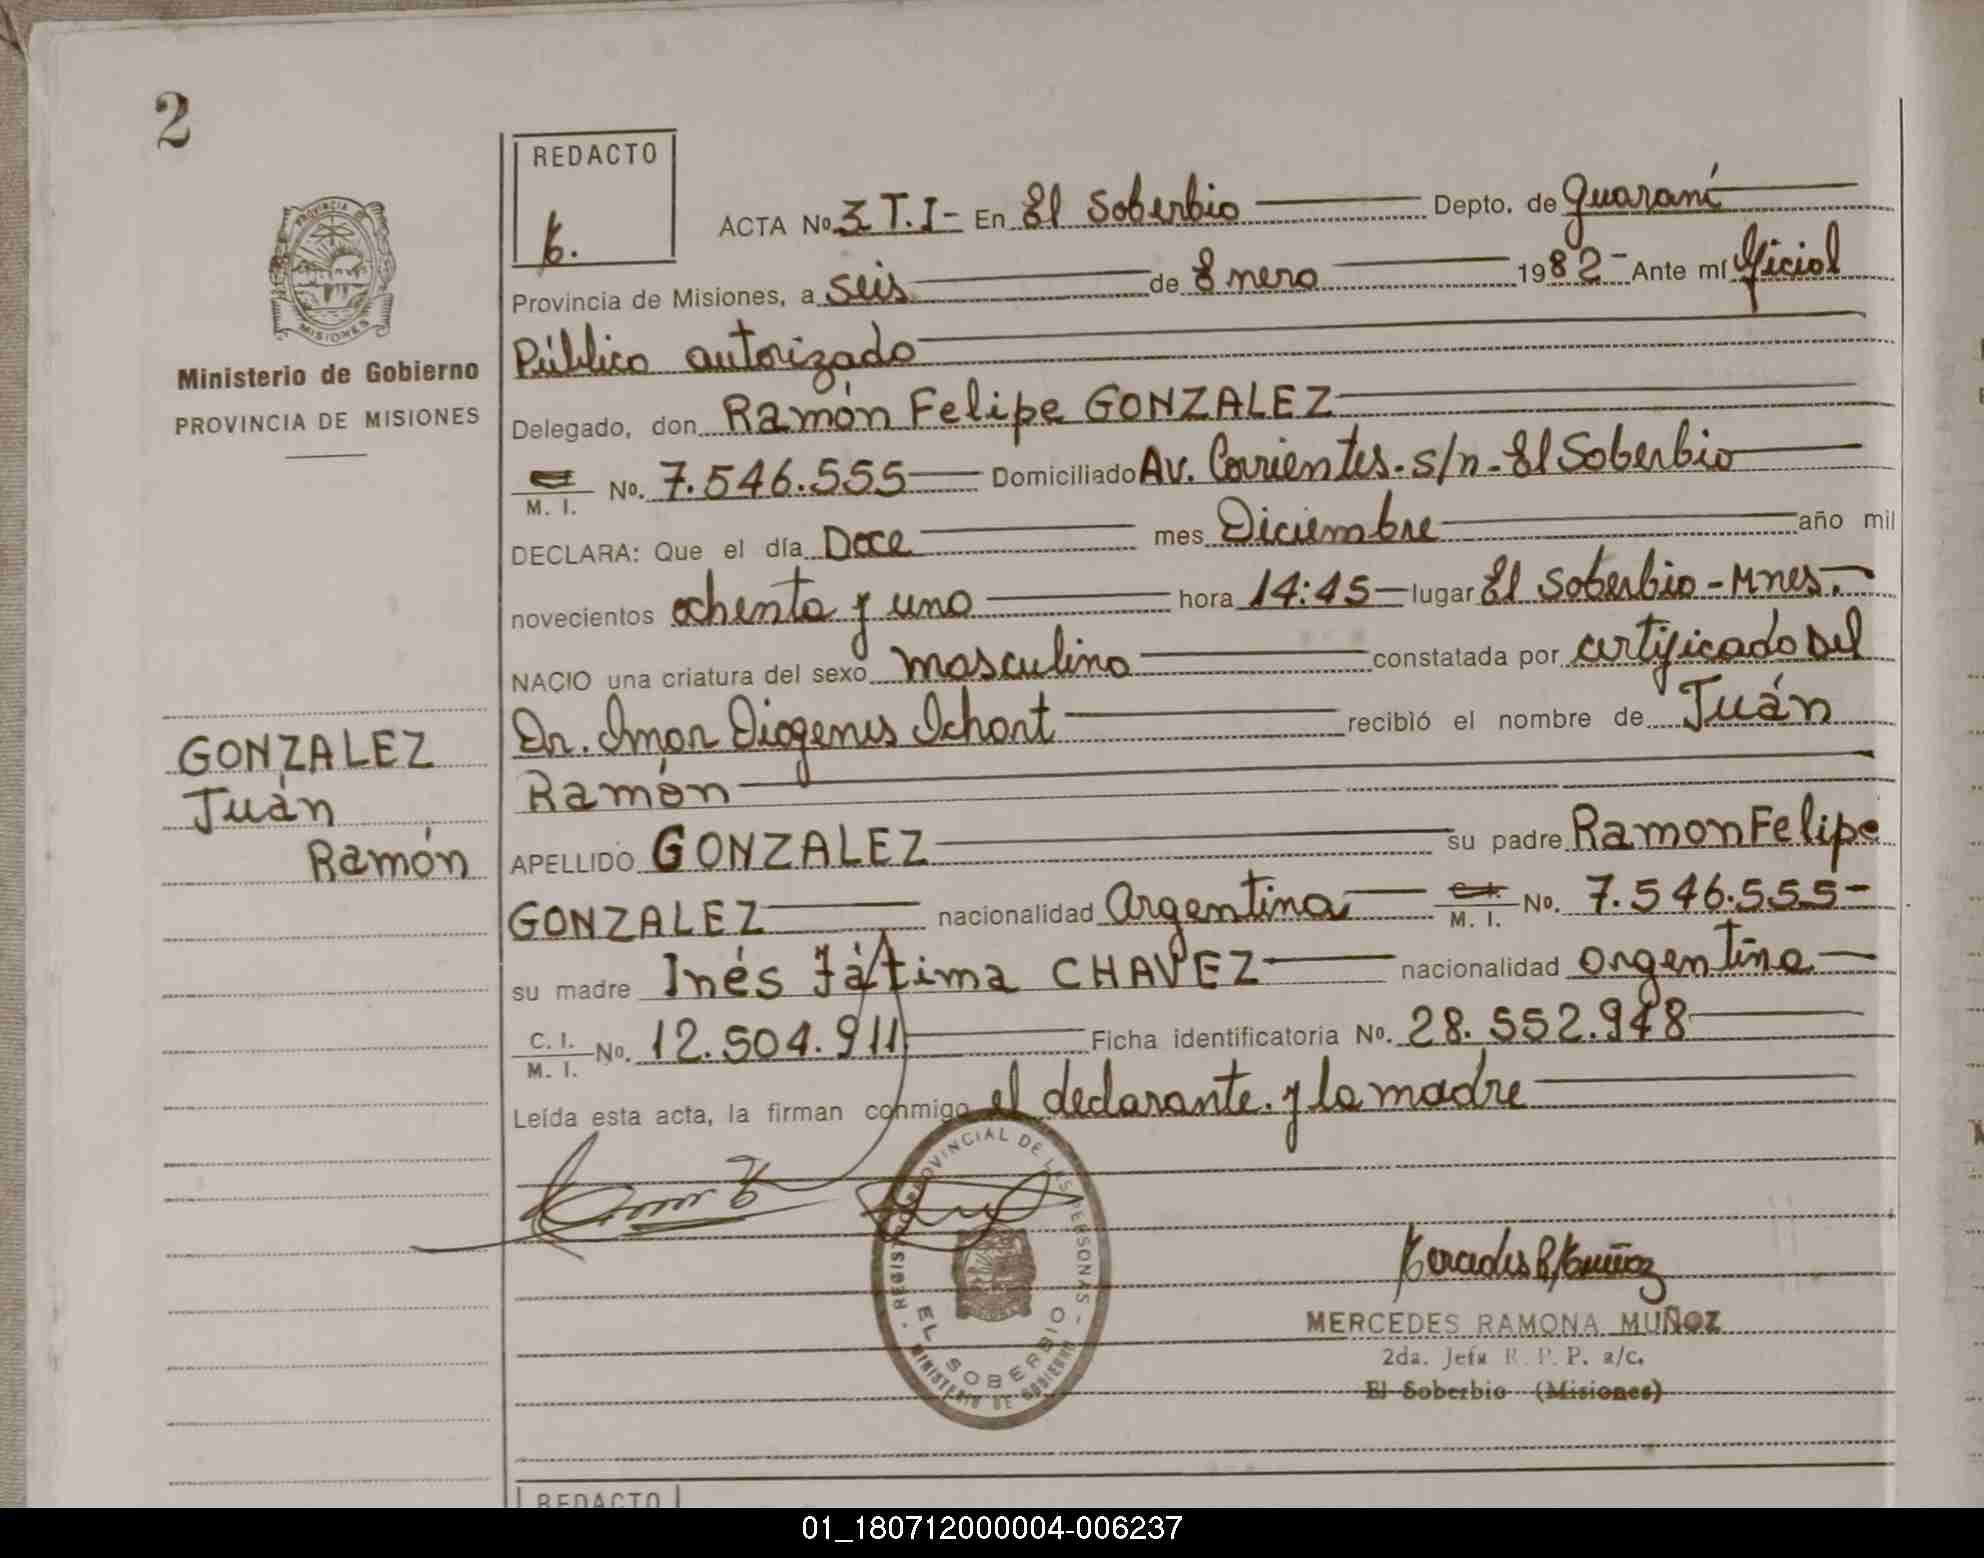 2
REDACTO
ACTA No. 3 T.I- En El Soberbio Depto. de Guaraní
Provincia de Misiones, a seis de Enero 1982- Ante mí Oficial
Público autorizado
Ministerio de Gobierno
PROVINCIA DE MISIONES
Delegado, don Ramón Felipe GONZALEZ
M. I. No. 7.546.555 Domiciliado Av. Corrientes. s/n - El Soberbio
DECLARA: Que el día Doce mes Diciembre año mil
novecientos ochenta y uno hora 14:45 lugar El Soberbio - Mnes.
NACIO una criatura del sexo masculino constatada por certificado del
Dr. Omar Diogenes Ichart recibió el nombre de Juán
Ramón
GONZALEZ
Juán
Ramón
APELLIDO GONZALEZ su padre Ramon Felipe
GONZALEZ nacionalidad Argentina M. I. No. 7.546.555-
su madre Inés Fátima CHAVEZ nacionalidad argentina
C. I. M. I. No. 12.504.911 Ficha identificatoria No. 28.552.948
Leída esta acta, la firman conmigo el declarante. y la madre
REGISTRO PROVINCIAL DE LAS PERSONAS
EL SOBERBIO
MINISTERIO DE GOBIERNO
MERCEDES RAMONA MUÑOZ
2da. Jefa R. P. P. a/c.
El Soberbio (Misiones)
REDACTO
01_180712000004-006237